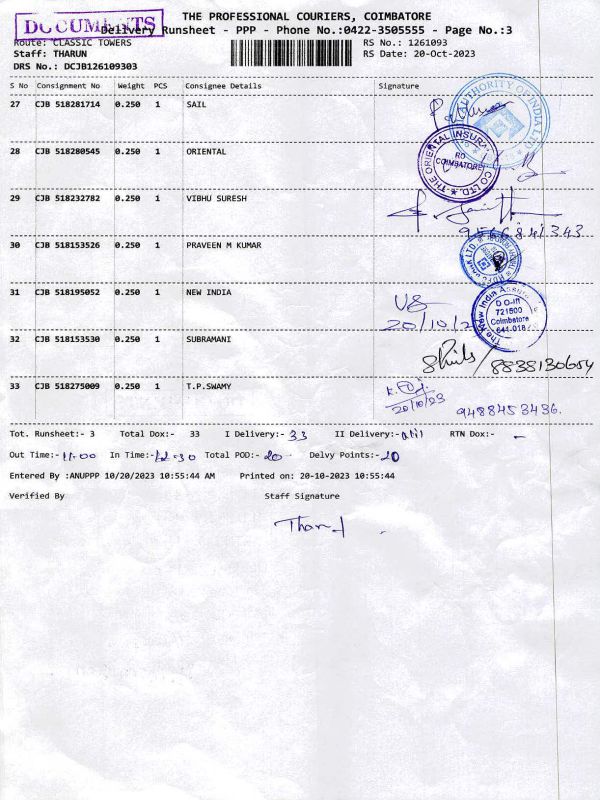 THE PROFESSIONAL COURIERS, COIMBATORE
DOCUMENTS
Delivery Runsheet - PPP - Phone No.:0422-3505555 - Page No.:3
Route: CLASSIC TOWERS RS No.: 1261093
Staff: THARUN RS Date: 20-Oct-2023
DRS No.: DCJB126109303
S No Consignment No Weight PCS Consignee Details Signature
27 CJB 518281714 0.250 1 SAIL
AUTHORITY OF INDIA LTD
28 CJB 518280545 0.250 1 ORIENTAL
THE ORIENTAL INSURANCE CO LTD.
RO
COIMBATORE
29 CJB 518232782 0.250 1 VIBHU SURESH
9566841343
30 CJB 518153526 0.250 1 PRAVEEN M KUMAR
31 CJB 518195052 0.250 1 NEW INDIA
The New India Assura
D O-III
721600
Coimbatore
641-018
20/10/2
32 CJB 518153530 0.250 1 SUBRAMANI
8838130654
33 CJB 518275009 0.250 1 T.P.SWAMY
20/10/23
9488453436.
Tot. Runsheet:- 3 Total Dox:- 33 I Delivery:- 33 II Delivery:- RTN Dox:- -
Out Time:- 11.00 In Time:- 12.30 Total POD:- 20 Delvy Points:- 20
Entered By :ANUPPP 10/20/2023 10:55:44 AM Printed on: 20-10-2023 10:55:44
Verified By Staff Signature